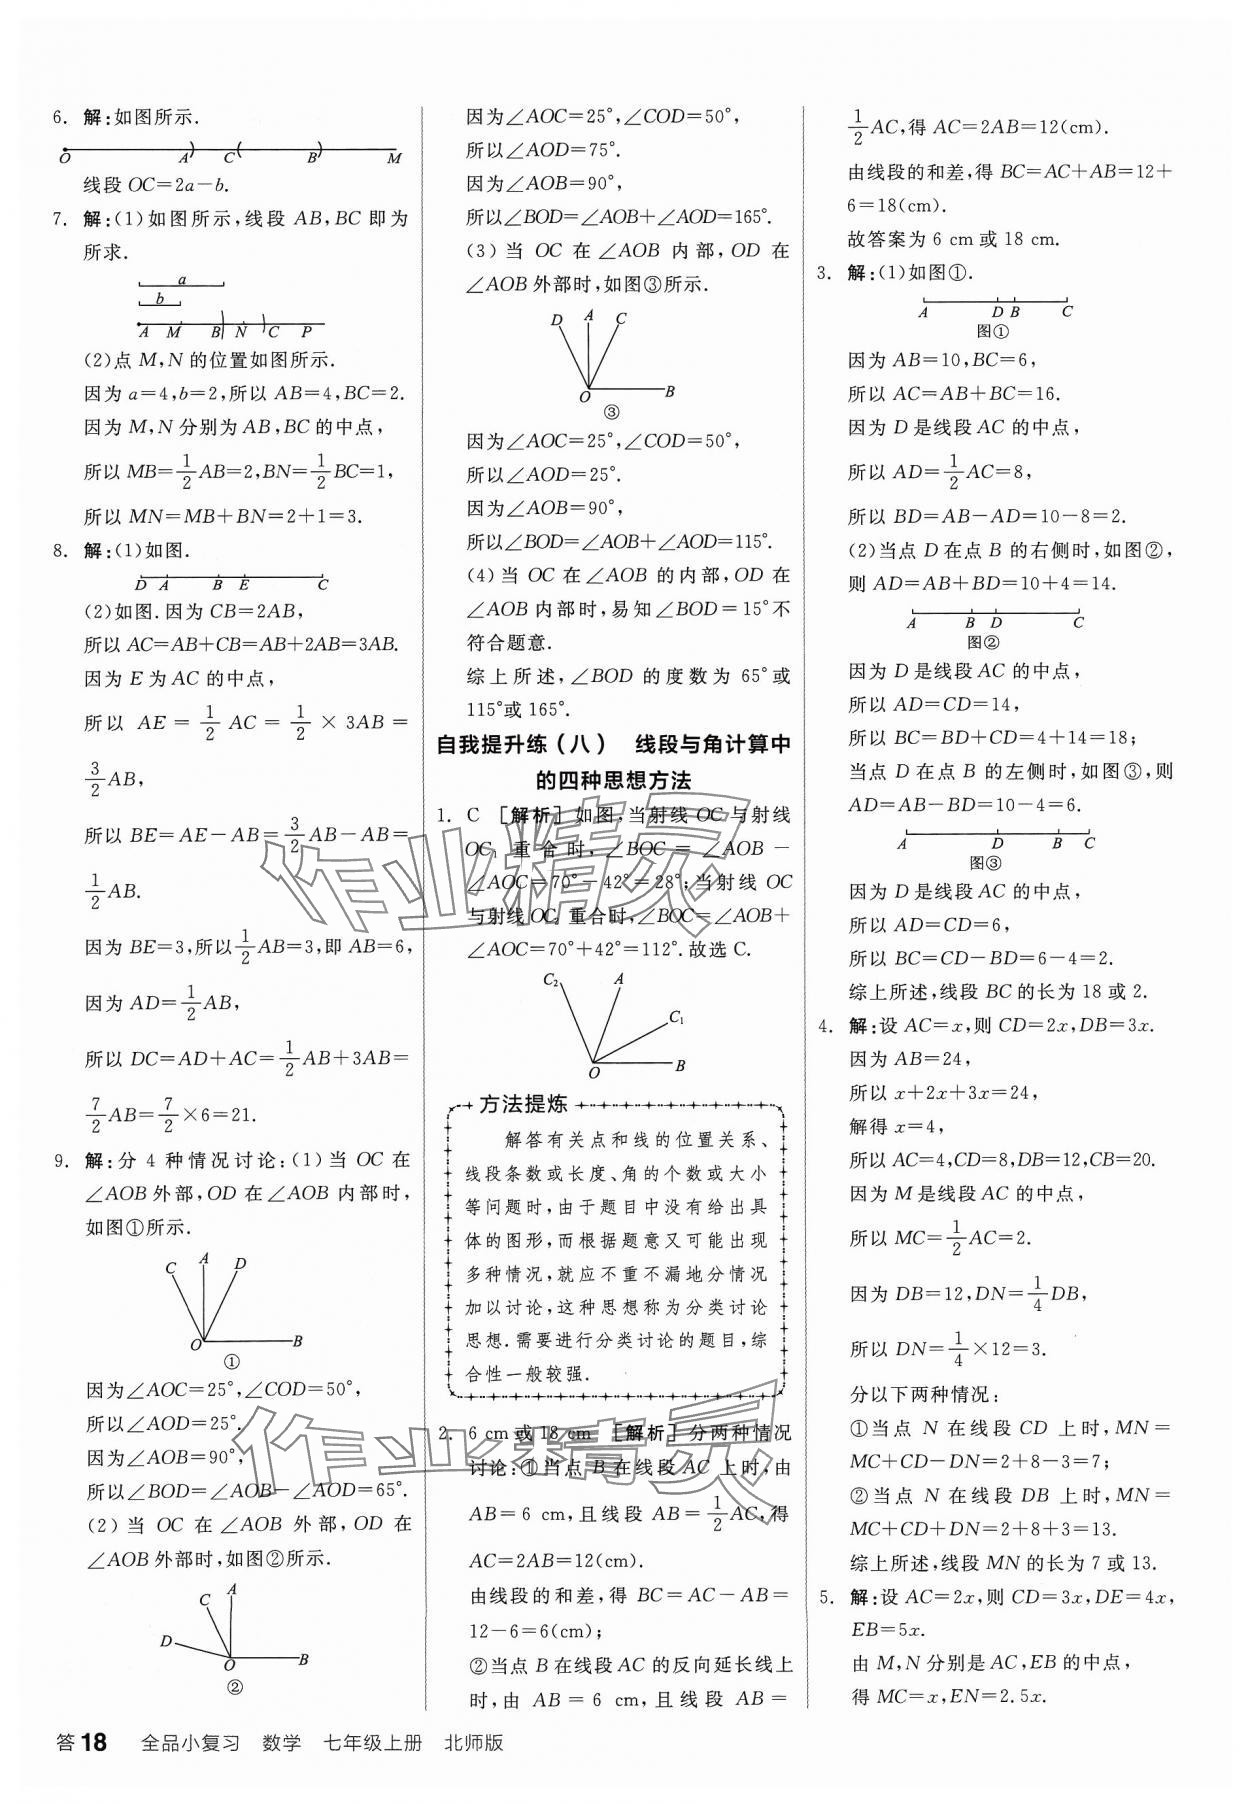 6. 解:如图所示.
O A C B M
线段 OC=2a-b.
7. 解:(1)如图所示,线段 AB,BC 即为
所求.
a
b
A M B N C P
(2)点 M,N 的位置如图所示.
因为 a=4,b=2,所以 AB=4,BC=2.
因为 M,N 分别为 AB,BC 的中点,
所以 MB=1/2AB=2,BN=1/2BC=1,
所以 MN=MB+BN=2+1=3.
8. 解:(1)如图.
D A B E C
(2)如图.因为 CB=2AB,
所以 AC=AB+CB=AB+2AB=3AB.
因为 E 为 AC 的中点,
所以 AE=1/2AC=1/2×3AB=
3/2AB,
所以 BE=AE-AB=3/2AB-AB=
1/2AB.
因为 BE=3,所以1/2AB=3,即 AB=6,
因为 AD=1/2AB,
所以 DC=AD+AC=1/2AB+3AB=
7/2AB=7/2×6=21.
9. 解:分 4 种情况讨论:(1)当 OC 在
∠AOB 外部,OD 在∠AOB 内部时,
如图①所示.
C A D
O B
①
因为∠AOC=25°,∠COD=50°,
所以∠AOD=25°.
因为∠AOB=90°,
所以∠BOD=∠AOB-∠AOD=65°.
(2)当 OC 在∠AOB 外部,OD 在
∠AOB 外部时,如图②所示.
C A
D
O B
②
因为∠AOC=25°,∠COD=50°,
所以∠AOD=75°.
因为∠AOB=90°,
所以∠BOD=∠AOB+∠AOD=165°.
(3)当 OC 在∠AOB 内部,OD 在
∠AOB 外部时,如图③所示.
D A C
O B
③
因为∠AOC=25°,∠COD=50°,
所以∠AOD=25°.
因为∠AOB=90°,
所以∠BOD=∠AOB+∠AOD=115°.
(4)当 OC 在∠AOB 的内部,OD 在
∠AOB 内部时,易知∠BOD=15°不
符合题意.
综上所述,∠BOD 的度数为 65°或
115°或 165°.
自我提升练(八) 线段与角计算中
的四种思想方法
1. C [解析] 如图,当射线 OC 与射线
OC₁ 重合时,∠BOC=∠AOB-
∠AOC=70°-42°=28°;当射线 OC
与射线 OC₂ 重合时,∠BOC=∠AOB+
∠AOC=70°+42°=112°.故选 C.
C₂ A
C₁
O B
方法提炼
解答有关点和线的位置关系、
线段条数或长度、角的个数或大小
等问题时,由于题目中没有给出具
体的图形,而根据题意又可能出现
多种情况,就应不重不漏地分情况
加以讨论,这种思想称为分类讨论
思想.需要进行分类讨论的题目,综
合性一般较强.
2. 6 cm 或 18 cm [解析] 分两种情况
讨论:①当点 B 在线段 AC 上时,由
AB=6 cm,且线段 AB=1/2AC,得
AC=2AB=12(cm).
由线段的和差,得 BC=AC-AB=
12-6=6(cm);
②当点 B 在线段 AC 的反向延长线上
时,由 AB=6 cm,且线段 AB=
1/2AC,得 AC=2AB=12(cm).
由线段的和差,得 BC=AC+AB=12+
6=18(cm).
故答案为 6 cm 或 18 cm.
3. 解:(1)如图①.
A D B C
图①
因为 AB=10,BC=6,
所以 AC=AB+BC=16.
因为 D 是线段 AC 的中点,
所以 AD=1/2AC=8,
所以 BD=AB-AD=10-8=2.
(2)当点 D 在点 B 的右侧时,如图②,
则 AD=AB+BD=10+4=14.
A B D C
图②
因为 D 是线段 AC 的中点,
所以 AD=CD=14,
所以 BC=BD+CD=4+14=18;
当点 D 在点 B 的左侧时,如图③,则
AD=AB-BD=10-4=6.
A D B C
图③
因为 D 是线段 AC 的中点,
所以 AD=CD=6,
所以 BC=CD-BD=6-4=2.
综上所述,线段 BC 的长为 18 或 2.
4. 解:设 AC=x,则 CD=2x,DB=3x.
因为 AB=24,
所以 x+2x+3x=24,
解得 x=4,
所以 AC=4,CD=8,DB=12,CB=20.
因为 M 是线段 AC 的中点,
所以 MC=1/2AC=2.
因为 DB=12,DN=1/4DB,
所以 DN=1/4×12=3.
分以下两种情况:
①当点 N 在线段 CD 上时,MN=
MC+CD-DN=2+8-3=7;
②当点 N 在线段 DB 上时,MN=
MC+CD+DN=2+8+3=13.
综上所述,线段 MN 的长为 7 或 13.
5. 解:设 AC=2x,则 CD=3x,DE=4x,
EB=5x.
由 M,N 分别是 AC,EB 的中点,
得 MC=x,EN=2.5x.
作业精灵
作业精灵
答 18 全品小复习 数学 七年级上册 北师版